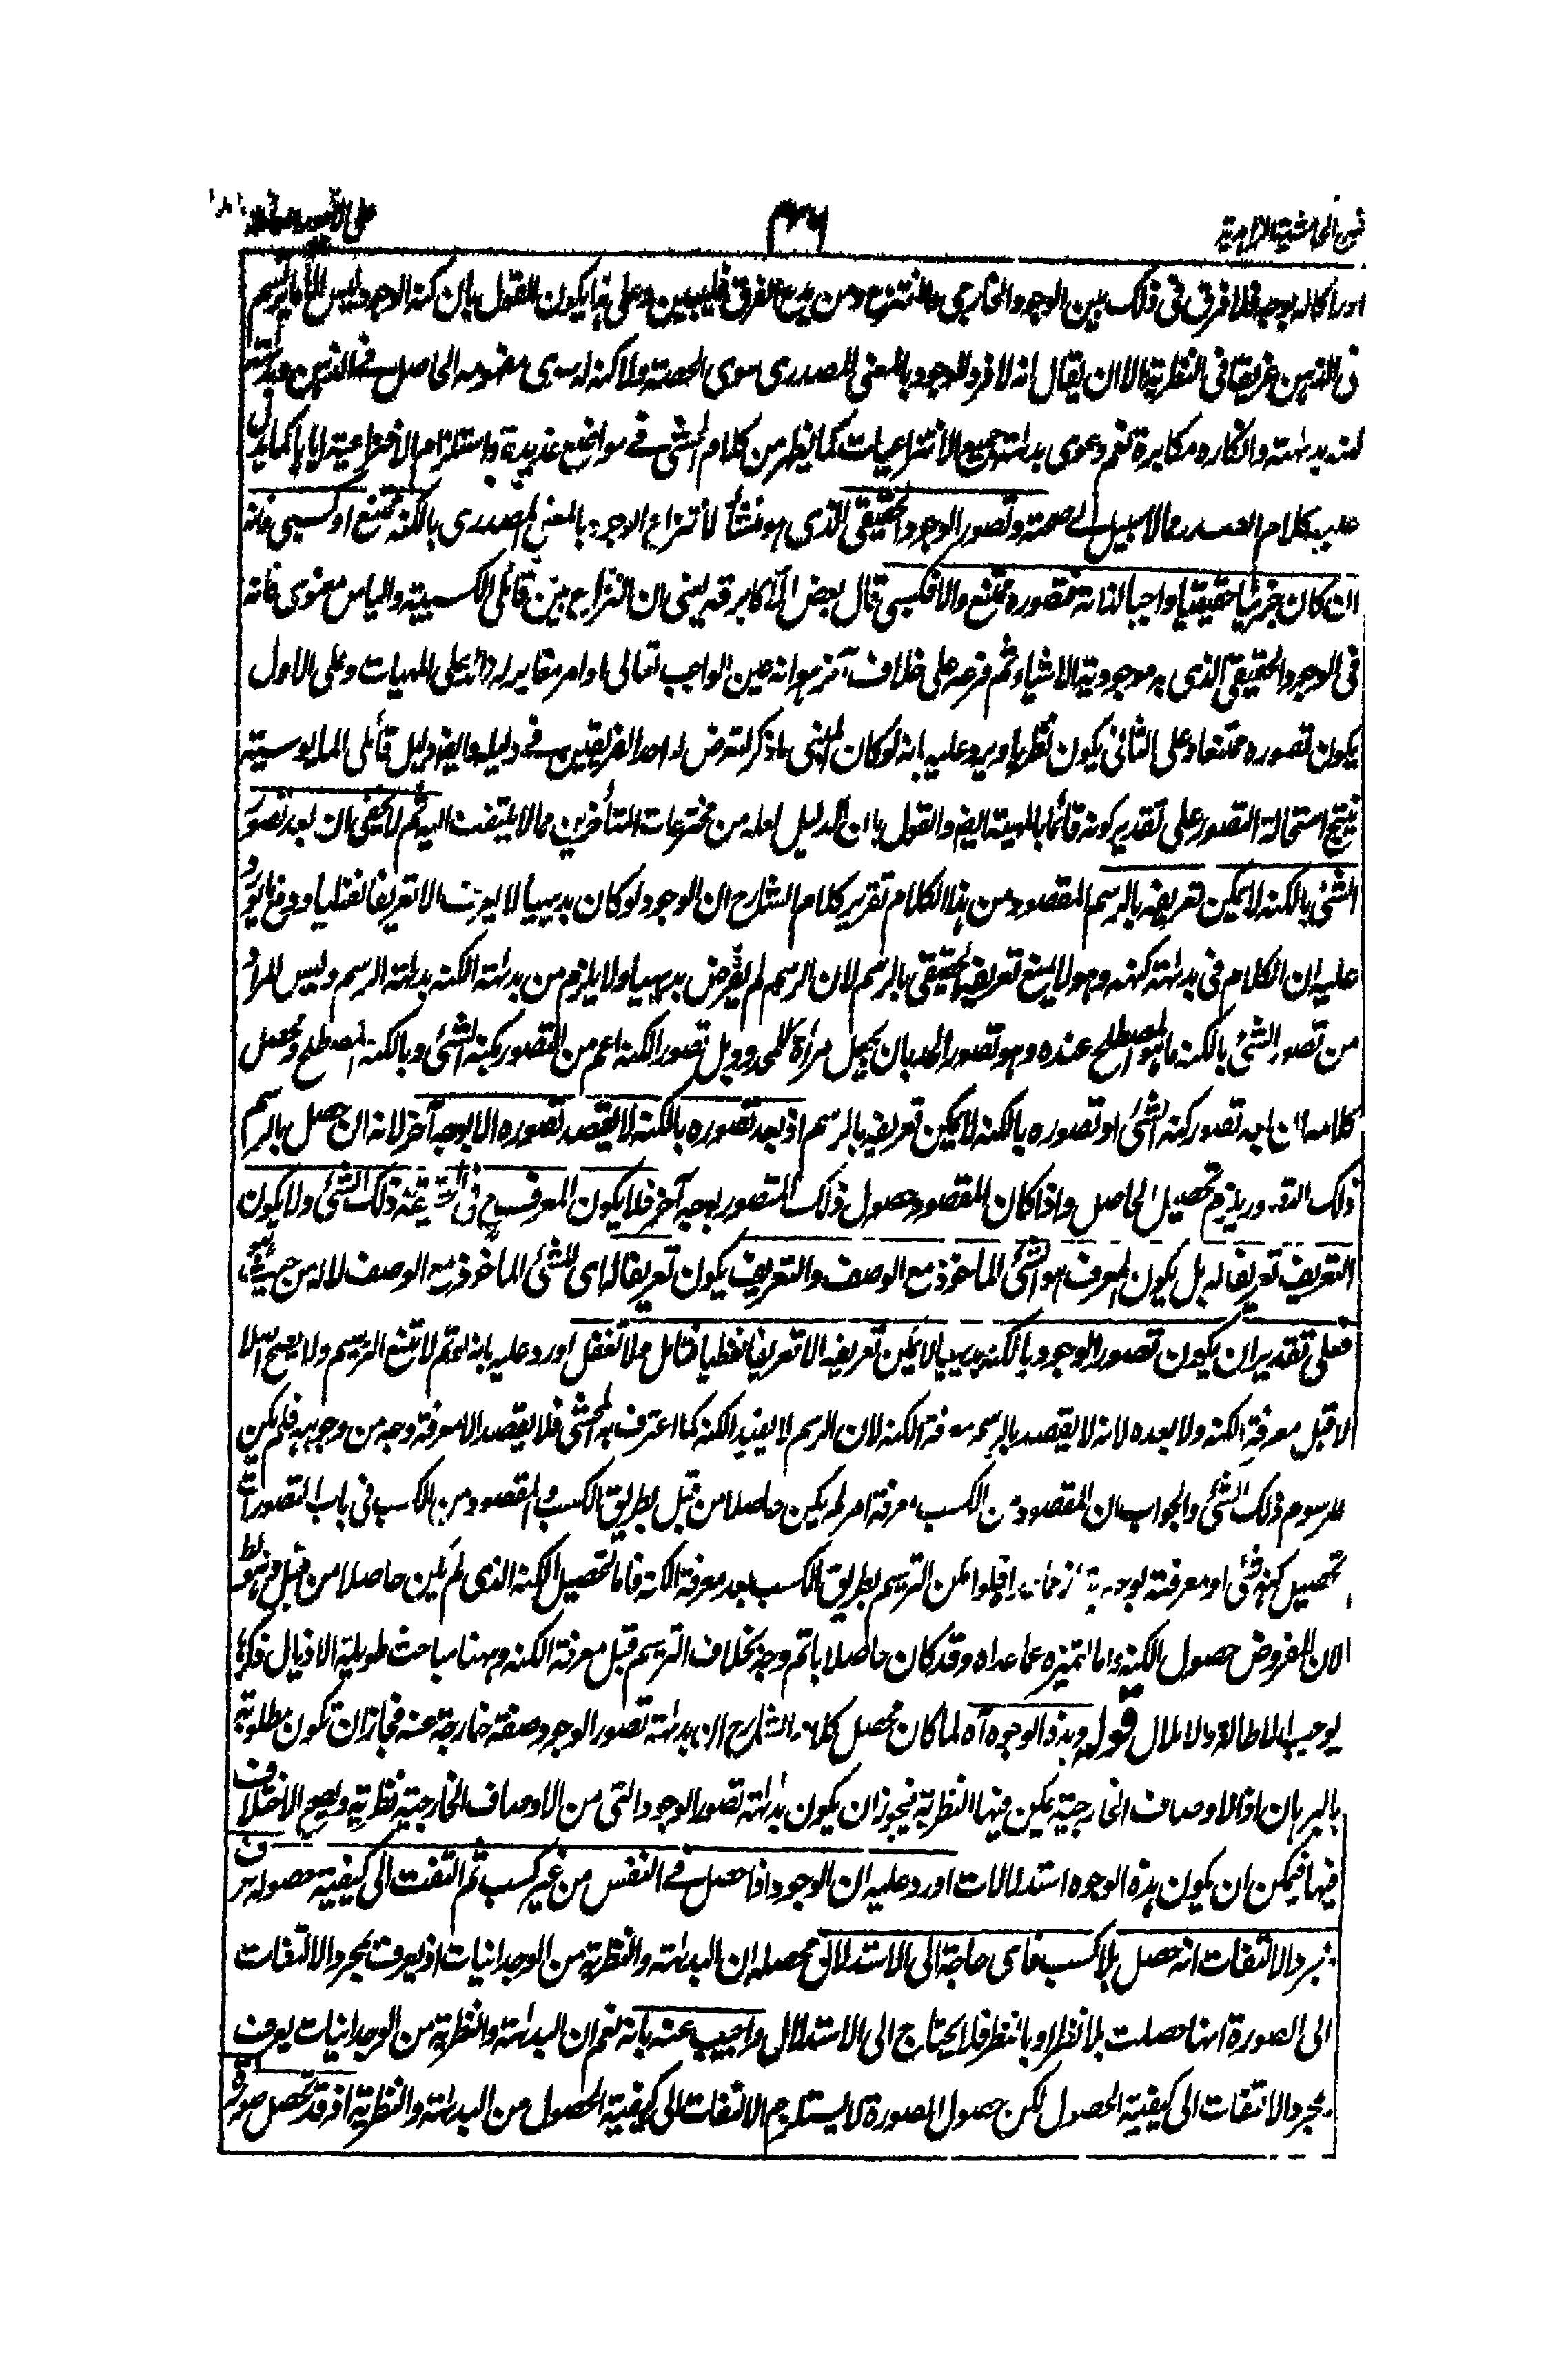 ٣٦
ادراكاله بوجه فلا فرق فى ذلك بين الوجود الخارجى والانتزاع ومن يدع الفرق فليبين وعلى هذا يكون القول بان كنه الوجود ليس الا ما يرتسم
فى الذهن غريقا فى النظرية الا ان يقال انه لا فرد للوجود بالمعنى المصدرى سوى الحصة ولا كنه له سوى مفهومه الحاصل فى الذهن
بداهته وانكاره مكابرة نعم دعوى بداهة جميع الانتزاعيات كما يظهر من كلام المحشى فى مواضع عديدة واستلزام الانتزاعية اياها كما يدل
عليه كلام الصدر مما لا سبيل الى صحته وتصور الوجود الحقيقى الذى هو منشأ لانتزاع الوجود بالمعنى المصدرى بالكنه ممتنع او كسبى فانه
ان كان جزئيا حقيقيا واجبا لذاته فتصوره ممتنع والا فكسبى قال بعض الاكابر قه يعنى ان النزاع بين قائلى الكسبية والياس معنوى فانه
فى الوجود الحقيقى الذى به موجودية الاشياء ثم فرعه على خلاف آخر هو انه عين الواجب تعالى او امر مغاير له زائد على المهيات وعلى الاول
يكون تصوره ممتنعا وعلى الثانى يكون نظريا ويرد عليه بانه لو كان المبنى ما ذكر لتعرض له احد الفريقين فى دليله وايضا دليل قائلى المايوسية
ينتج استحالة التصور على تقدير كونه قائما بالمهية ايضا والقول بان الدليل لعله من مخترعات المتأخرين مما لا يلتفت اليه ثم لا يخفى ان بعد تصور
الشئ بالكنه لا يمكن تعريفه بالرسم المقصود من هذا الكلام تقرير كلام الشارح ان الوجود لو كان بديهيا لا يعرف الا تعريفا لفظيا ودفع ما يورد
عليه ان الكلام فى بداهة كنهه وهو لا يمنع تعريفه الحقيقى بالرسم لان الرسم لم يفرض بديهيا ولا يلزم من بداهة الكنه بداهة الرسم وليس المراد
من تصور الشئ بالكنه ما هو المصطلح عنده وهو تصور الحد بان يجعل مرآة للمحدود بل تصور الكنه اعم من التصور بكنه الشئ وبالكنه المصطلح ومحصل
كلامه ان بعد تصور كنه الشئ او تصوره بالكنه لا يمكن تعريفه بالرسم اذ بعد تصوره بالكنه لا يقصد تصوره الا بوجه آخر لانه ان حصل بالرسم
ذلك التصور يلزم تحصيل الحاصل واذا كان المقصود حصول ذلك المتصور بوجه آخر فلا يكون المعرف ح فى الحقيقة ذلك الشئ ولا يكون
التعريف تعريفا له بل يكون المعرف هو الشئ الماخوذ مع الوصف والتعريف يكون تعريفا له اى للشئ الماخوذ مع الوصف لا له من حيث هو
فعلى تقدير ان يكون تصور الوجود بالكنه بديهيا لا يمكن تعريفه الا تعريفا لفظيا فتامل ولا تغفل اورد عليه بانه لو تم لامتنع الترسيم ولا يصح اصلا
لا قبل معرفة الكنه ولا بعده لانه لا يقصد بالرسم معرفة الكنه لان الرسم لا يفيد الكنه كما اعترف به المحشى فلا يقصد الا معرفة وجه من وجوهه فلم يكن
المرسوم ذلك الشئ والجواب ان المقصود من الكسب معرفة امر لم يكن حاصلا من قبل بطريق الكسب والمقصود من الكسب فى باب التصورات
تحصيل كنه شئ او معرفته بوجه فلو امكن الترسيم بطريق الكسب بعد معرفة الكنه فاما لتحصيل الكنه الذى لم يكن حاصلا من قبل
لان المفروض حصول الكنه واما لتميزه عما عداه وقد كان حاصلا باتم وجه بخلاف الترسيم قبل معرفة الكنه وههنا مباحث طويلة الاذيال ذكرها
يوجب الاطالة والاملال قوله وهذه الوجوه آه لما كان محصل كلام الشارح ان بداهة تصور الوجود صفة خارجة عنه فجاز ان تكون مطلوبة
بالبرهان اذ الاوصاف الخارجية يمكن فيها النظرية فيجوز ان يكون بداهة تصور الوجود التى من الاوصاف الخارجية نظرية ويصح الاختلاف
فيها فيمكن ان يكون هذه الوجوه استدلالات اورد عليه ان الوجود اذا حصل فى النفس من غير كسب ثم التفت الى كيفية حصوله عرف
بمجرد الالتفات انه حصل بلا كسب فاى حاجة الى الاستدلال محصله ان البداهة والنظرية من الوجدانيات اذ يعرف بمجرد الالتفات
الى الصورة انها حصلت بلا نظر او بالنظر فلا يحتاج الى الاستدلال واجيب عنه بانه نعم ان البداهة والنظرية من الوجدانيات يعرف
بمجرد الالتفات الى كيفية الحصول لكن حصول الصورة لا يستلزم الالتفات الى كيفية الحصول من البداهة والنظرية اذ قد تحصل صورة